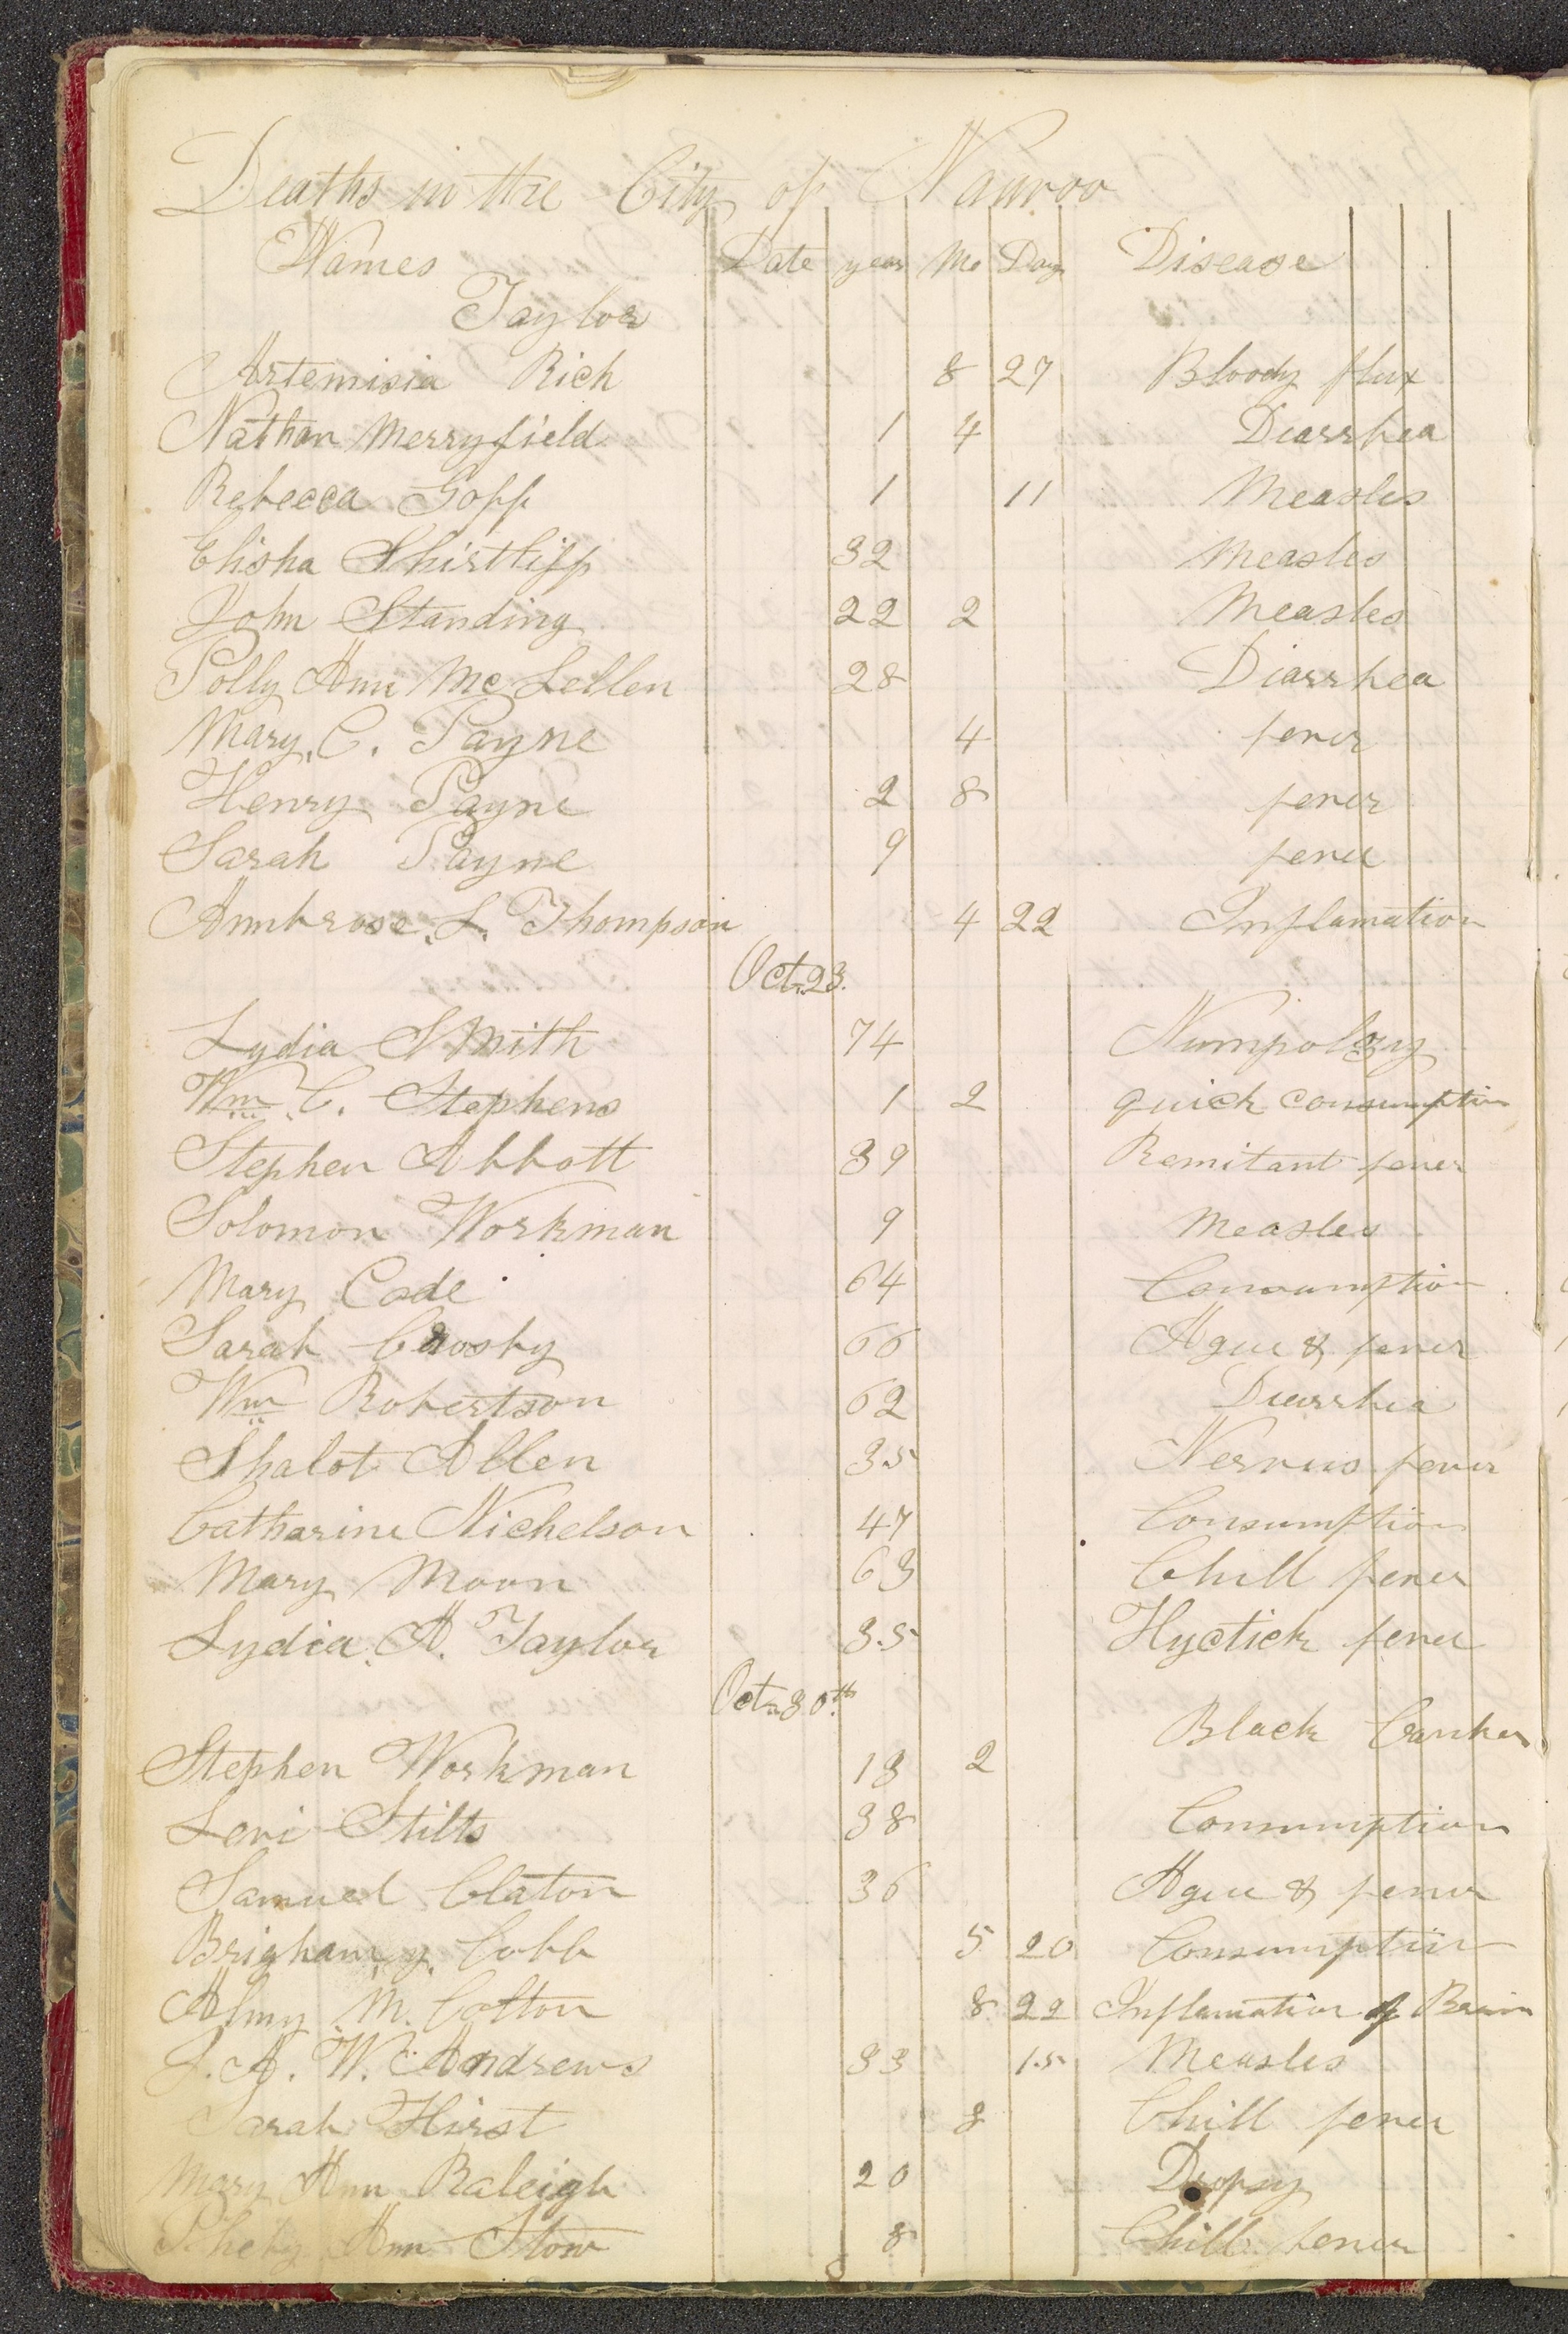 Deaths in the City of Nauvoo
Names Date year Mo Day Disease
Taylor
Artemisia Rich 8 27 Bloody flux
Nathan Merryfield 1 4 Diarrhea
Rebecca Goff 1 11 Measles
Elisha Shirtliff 32 Measles
John Standing 22 2 Measles
Polly Ann McLellen 28 Diarrhea
Mary. C. Payne 4 fever
Henry Payne 2 8 fever
Sarah Payne 9 fever
Ambrose. L. Thompson 4 22 Inflamation
Oct. 23.
Lydia Smith 74
Wm C. Stephens 1 2 quick consumption
Stephen Abbott 39 Remitant fever
Solomon Workman 9 Measles
Mary Cade 64 Consumption
Sarah Crosby 66 Ague & fever
Wm Robertson 62 Diarrhea
Shalot Allen 35 Nervus fever
Catharine Nichelson 47 Consumption
Mary Moon 63 Chill fever
Lydia. A. Taylor 35 Hyctick fever
Oct. 30th
Stephen Workman 13 2 Black Canker
Levi Stilts 38 Consumption
Samuel Claton 36 Ague & fever
Brigham. y. Cobb 5 20 Consumption
Almy. M. Colton 8 22 Inflamation of Brain
J. A. W. Andrews 33 15 Measles
Sarah Hirst 8 Chill fever
Mary Ann Raleigh 20 Dropsy
Pheby Ann Stow 8 Chill fever